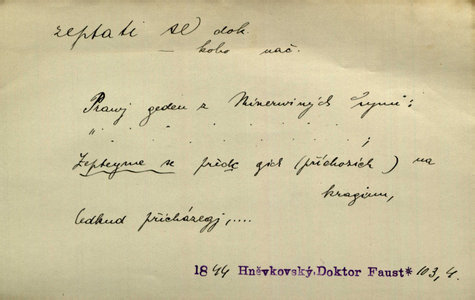 zeptati se dok.
— koho nač.
Prawj geden z Minerwiných synů:
„ . . . . . . . . . . ;
Zepteyme se předc gich (příchozích) na
kraginu,
Odkud přicházegj,....
1844 Hněvkovský, Doktor Faust* 103, 4.